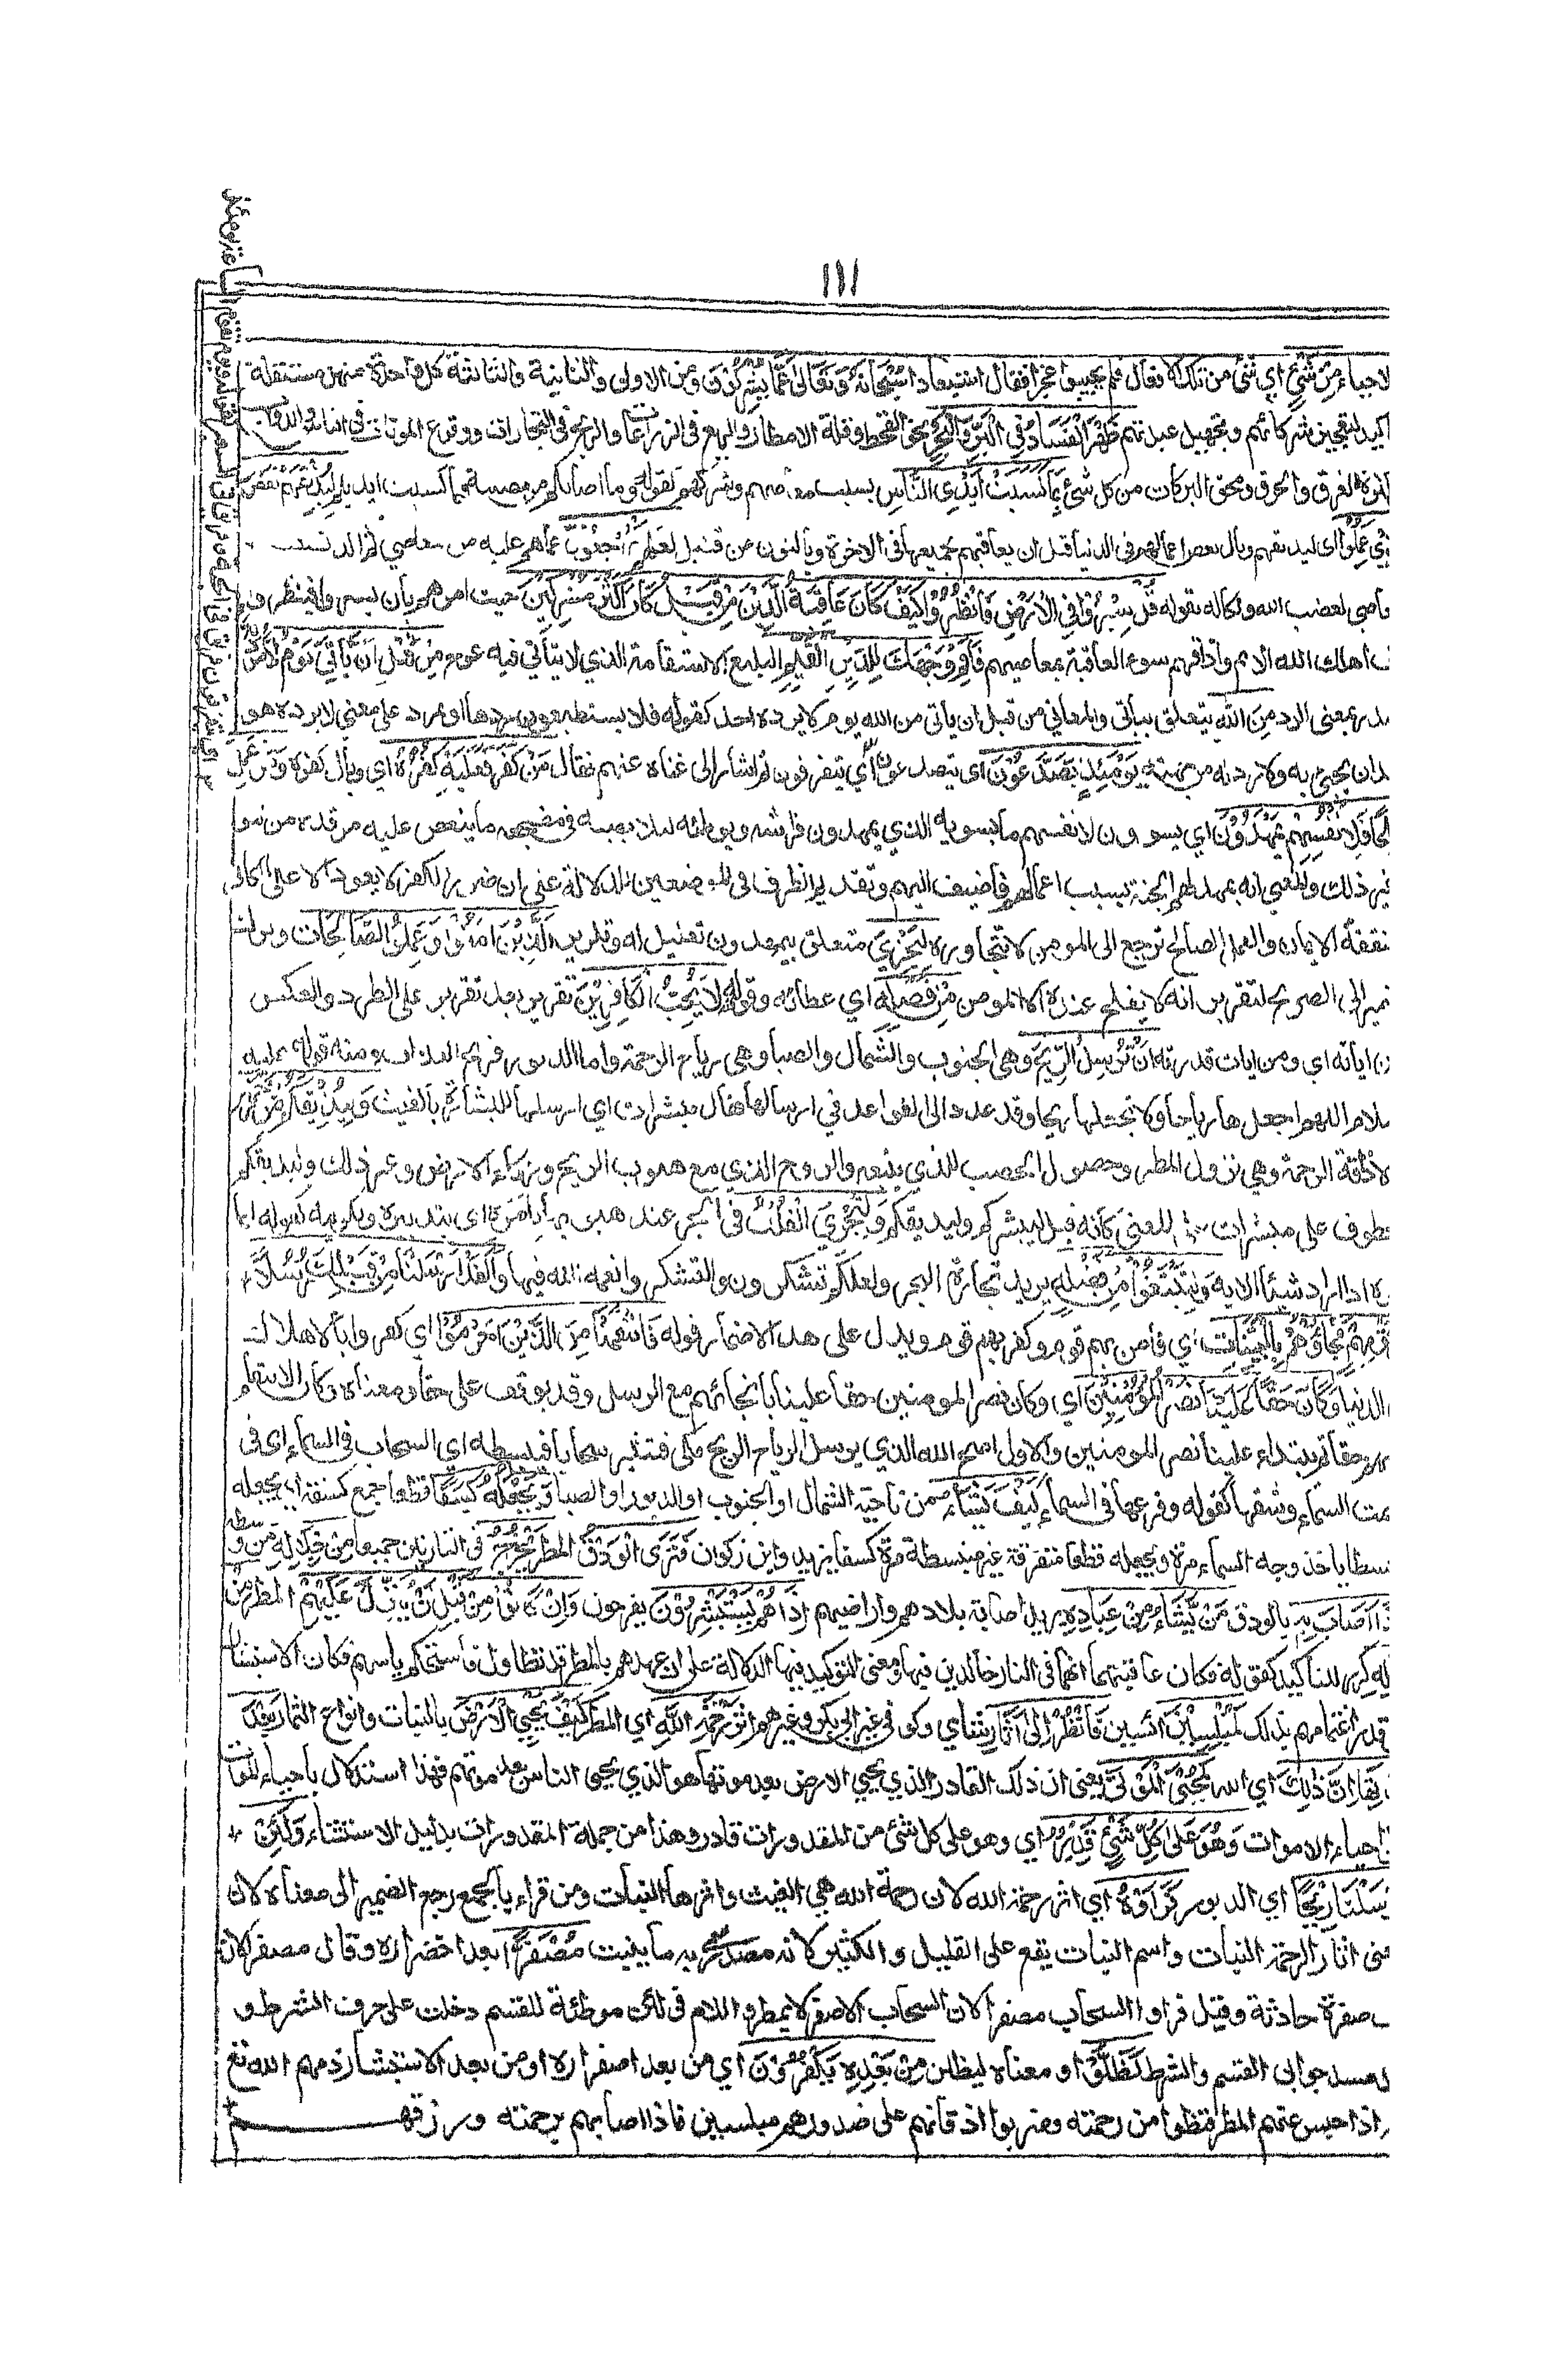 ١١١
الاحياء مِنْ شَيْءٍ اي شئ من تلك الافعال فلم يجيبوا عجزا فقال استبعادا سُبْحَانَهُ وَتَعَالَىٰ عَمَّا يُشْرِكُونَ ومن الاولى والثانية والثالثة كل واحدة منهن مستقلة
لتعجيز شركائهم وتجهيل عبدتهم ظَهَرَ الْفَسَادُ فِي الْبَرِّ وَالْبَحْرِ نحو القحط وقلة الامطار والريع في الزراعات والربح في التجارات ووقوع الموتان في الناس والدواب
الغرق والحرق ومحق البركات من كل شئ بِمَا كَسَبَتْ أَيْدِي النَّاسِ بسبب معاصيهم وشركهم كقوله وما اصابكم من مصيبة فبما كسبت ايديكم لِيُذِيقَهُمْ بَعْضَ
الَّذِي عَمِلُوا اى ليذيقهم وبال بعض اعمالهم في الدنيا قبل ان يعاقبهم بجميعها في الاخرة وبالنون عن قنبل لَعَلَّهُمْ يَرْجِعُونَ عما هم عليه من المعاصي ثم
لغضب الله ونكاله بقوله قُلْ سِيرُوا فِي الْأَرْضِ فَانْظُرُوا كَيْفَ كَانَ عَاقِبَةُ الَّذِينَ مِنْ قَبْلُ كَانَ أَكْثَرُهُمْ مُشْرِكِينَ حيث امرهم بأن يسيروا فينظروا
اهلك الله الامم واذاقهم سوء العاقبة بمعاصيهم فَأَقِمْ وَجْهَكَ لِلدِّينِ الْقَيِّمِ البليغ الاستقامة الذي لا يتأتى فيه عوج مِنْ قَبْلِ أَنْ يَأْتِيَ يَوْمٌ لَا مَرَدَّ
بمعنى الرد مِنَ اللَّهِ يتعلق بيأتى والمعنى من قبل ان ياتى من الله يوم لا يرده احد كقوله فلا يستطيعون ردها او بمرد على معنى لا يرده هو
ان يجئ به ولا رد له من جهته يَوْمَئِذٍ يَصَّدَّعُونَ اى يتصدعون اي يتفرقون ثم اشار الى غناه عنهم فقال مَنْ كَفَرَ فَعَلَيْهِ كُفْرُهُ اي وبال كفره وَمَنْ عَمِلَ
صَالِحًا فَلِأَنْفُسِهِمْ يَمْهَدُونَ اي يسوون لانفسهم ما يسويه الذي يمهدون فراشه ويوطئه لئلا يصيبه في مضجعه ما ينغص عليه مرقده من نتوء
ذلك والمعنى انه يمهد لهم الجنة بسبب اعمالهم فأضيف اليهم وتقديم الظرف في الموضعين للدلالة على ان ضرر الكفر لا يعود الا على الكافر
الايمان والعمل الصالح ترجع الى المومن لا تتجاوزه لِيَجْزِيَ متعلق بيمهدون تعليل له وتكرير الَّذِينَ آمَنُوا وَعَمِلُوا الصَّالِحَاتِ وترك
الضمير الى الصريح لتقرير انه لا يفلح عنده الا المومن مِنْ فَضْلِهِ اي عطائه وقوله إِنَّهُ لَا يُحِبُّ الْكَافِرِينَ تقرير بعد تقرير على الطرد والعكس
اياته اي ومن ايات قدرته أَنْ يُرْسِلَ الرِّيحَ وهي الجنوب والشمال والصبا وهي رياح الرحمة واما الدبور فريح العذاب ومنه قوله عليه
السلام اللهم اجعلها رياحا ولا تجعلها ريحا وقد عدد الفوائد في ارسالها فقال مبشرات اي ارسلها للبشارة بالغيث وَلِيُذِيقَكُمْ مِنْ
لاذاقة الرحمة وهي نزول المطر وحصول الخصب الذي يتبعه والروح الذي مع هبوب الريح وزكاء الارض وغير ذلك وليذيقكم
معطوف على مبشرات على المعنى كأنه قيل ليبشركم وليذيقكم وَلِتَجْرِيَ الْفُلْكُ في البحر عند هبوبها بِأَمْرِهِ اى بتدبيره وتكوينه كقوله انما
امره اذا اراد شيئا الاية وَلِتَبْتَغُوا مِنْ فَضْلِهِ يريد تجارة البحر ولعلكم تشكرون والتشكروا نعمة الله فيها وَلَقَدْ أَرْسَلْنَا مِنْ قَبْلِكَ رُسُلًا
قَوْمِهِمْ فَجَاؤُهُمْ بِالْبَيِّنَاتِ اي فآمن بهم قوم وكفر بهم قوم ويدل على هذا الاضمار قوله فَانْتَقَمْنَا مِنَ الَّذِينَ أَجْرَمُوا اي كفروا بالاهلاك
الدنيا وَكَانَ حَقًّا عَلَيْنَا نَصْرُ الْمُؤْمِنِينَ اي وكان نصر المومنين حقا علينا بانجائهم مع الرسل وقد يوقف على حقا ومعناه وكان الانتقام
حقا ثم يبتداء علينا نصر المومنين والاول اصح الله الذي يرسل الرياح الريح مكى فتثير سحابا فيبسطه اى السحاب في السماء اى في
سمت السماء وشقها كقوله وفرعها في السماء كَيْفَ يَشَاءُ من ناحية الشمال او الجنوب او الدبور او الصبا وَيَجْعَلُهُ كِسَفًا قطعا جمع كسفة اي يجعله
منبسطا ياخذ وجه السماء مرة ويجعله قطعا متفرقة غير منبسطة مرة كسفا يزيد وابن ذكوان فَتَرَى الْوَدْقَ المطر يَخْرُجُ في التارتين جميعا مِنْ خِلَالِهِ من وسطه
فَإِذَا أَصَابَ بِهِ بالودق مَنْ يَشَاءُ مِنْ عِبَادِهِ يريد اصابة بلادهم واراضيهم إِذَا هُمْ يَسْتَبْشِرُونَ يفرحون وَإِنْ كَانُوا مِنْ قَبْلِ أَنْ يُنَزَّلَ عَلَيْهِمْ المطر مِنْ
قَبْلِهِ كرر للتأكيد كقوله فكان عاقبتهما انهما في النار خالدين فيها ومعنى التوكيد فيها الدلالة على ان عهدهم بالمطر قد تطاول فاستحكم يأسهم فكان الاستبشار
على قدر اغتمامهم بذلك لَمُبْلِسِينَ ائسين فَانْظُرْ إِلَىٰ آثَارِ شامي وكوفي غير ابي بكر وغيرهم اثر رَحْمَةِ اللَّهِ اي المطر كَيْفَ يُحْيِي الْأَرْضَ بالنبات وانواع الثمار بَعْدَ
مَوْتِهَا إِنَّ ذَٰلِكَ اي الله لَمُحْيِي الْمَوْتَىٰ يعني ان ذلك القادر الذي يحيي الارض بعد موتها هو الذي يحيى الناس بعد موتهم فهذا استدلال باحياء الموات
على احياء الاموات وَهُوَ عَلَىٰ كُلِّ شَيْءٍ قَدِيرٌ اي وهو على كل شئ من المقدورات قادر وهذا من جملة المقدورات بدليل الانشاء وَلَئِنْ
أَرْسَلْنَا رِيحًا اي الدبور فَرَأَوْهُ اي اثر رحمة الله لان رحمة الله هي الغيث واثرها النبات ومن قراء بالجمع رجع الضمير الى معناه لان
معنى اثار الرحمة النبات واسم النبات يقع على القليل والكثير لانه مصدر سمي به ما ينبت مُصْفَرًّا بعد اخضراره وقال مصفرا لان
صفرة حادثة وقيل فراوا السحاب مصفرا لان السحاب الاصفر لا يمطر واللام في لئن موطئة للقسم دخلت على حرف الشرط و
مسد جوابى القسم والشرط لَظَلُّوا ومعناه ليظلن مِنْ بَعْدِهِ يَكْفُرُونَ اي من بعد اصفراره او من بعد الاستبشار ذمهم الله تع
اذا حبس عنهم المطر قنطوا من رحمته وضربوا اذقانهم على صدورهم مبلسين فاذا اصابهم برحمته ورزقهم